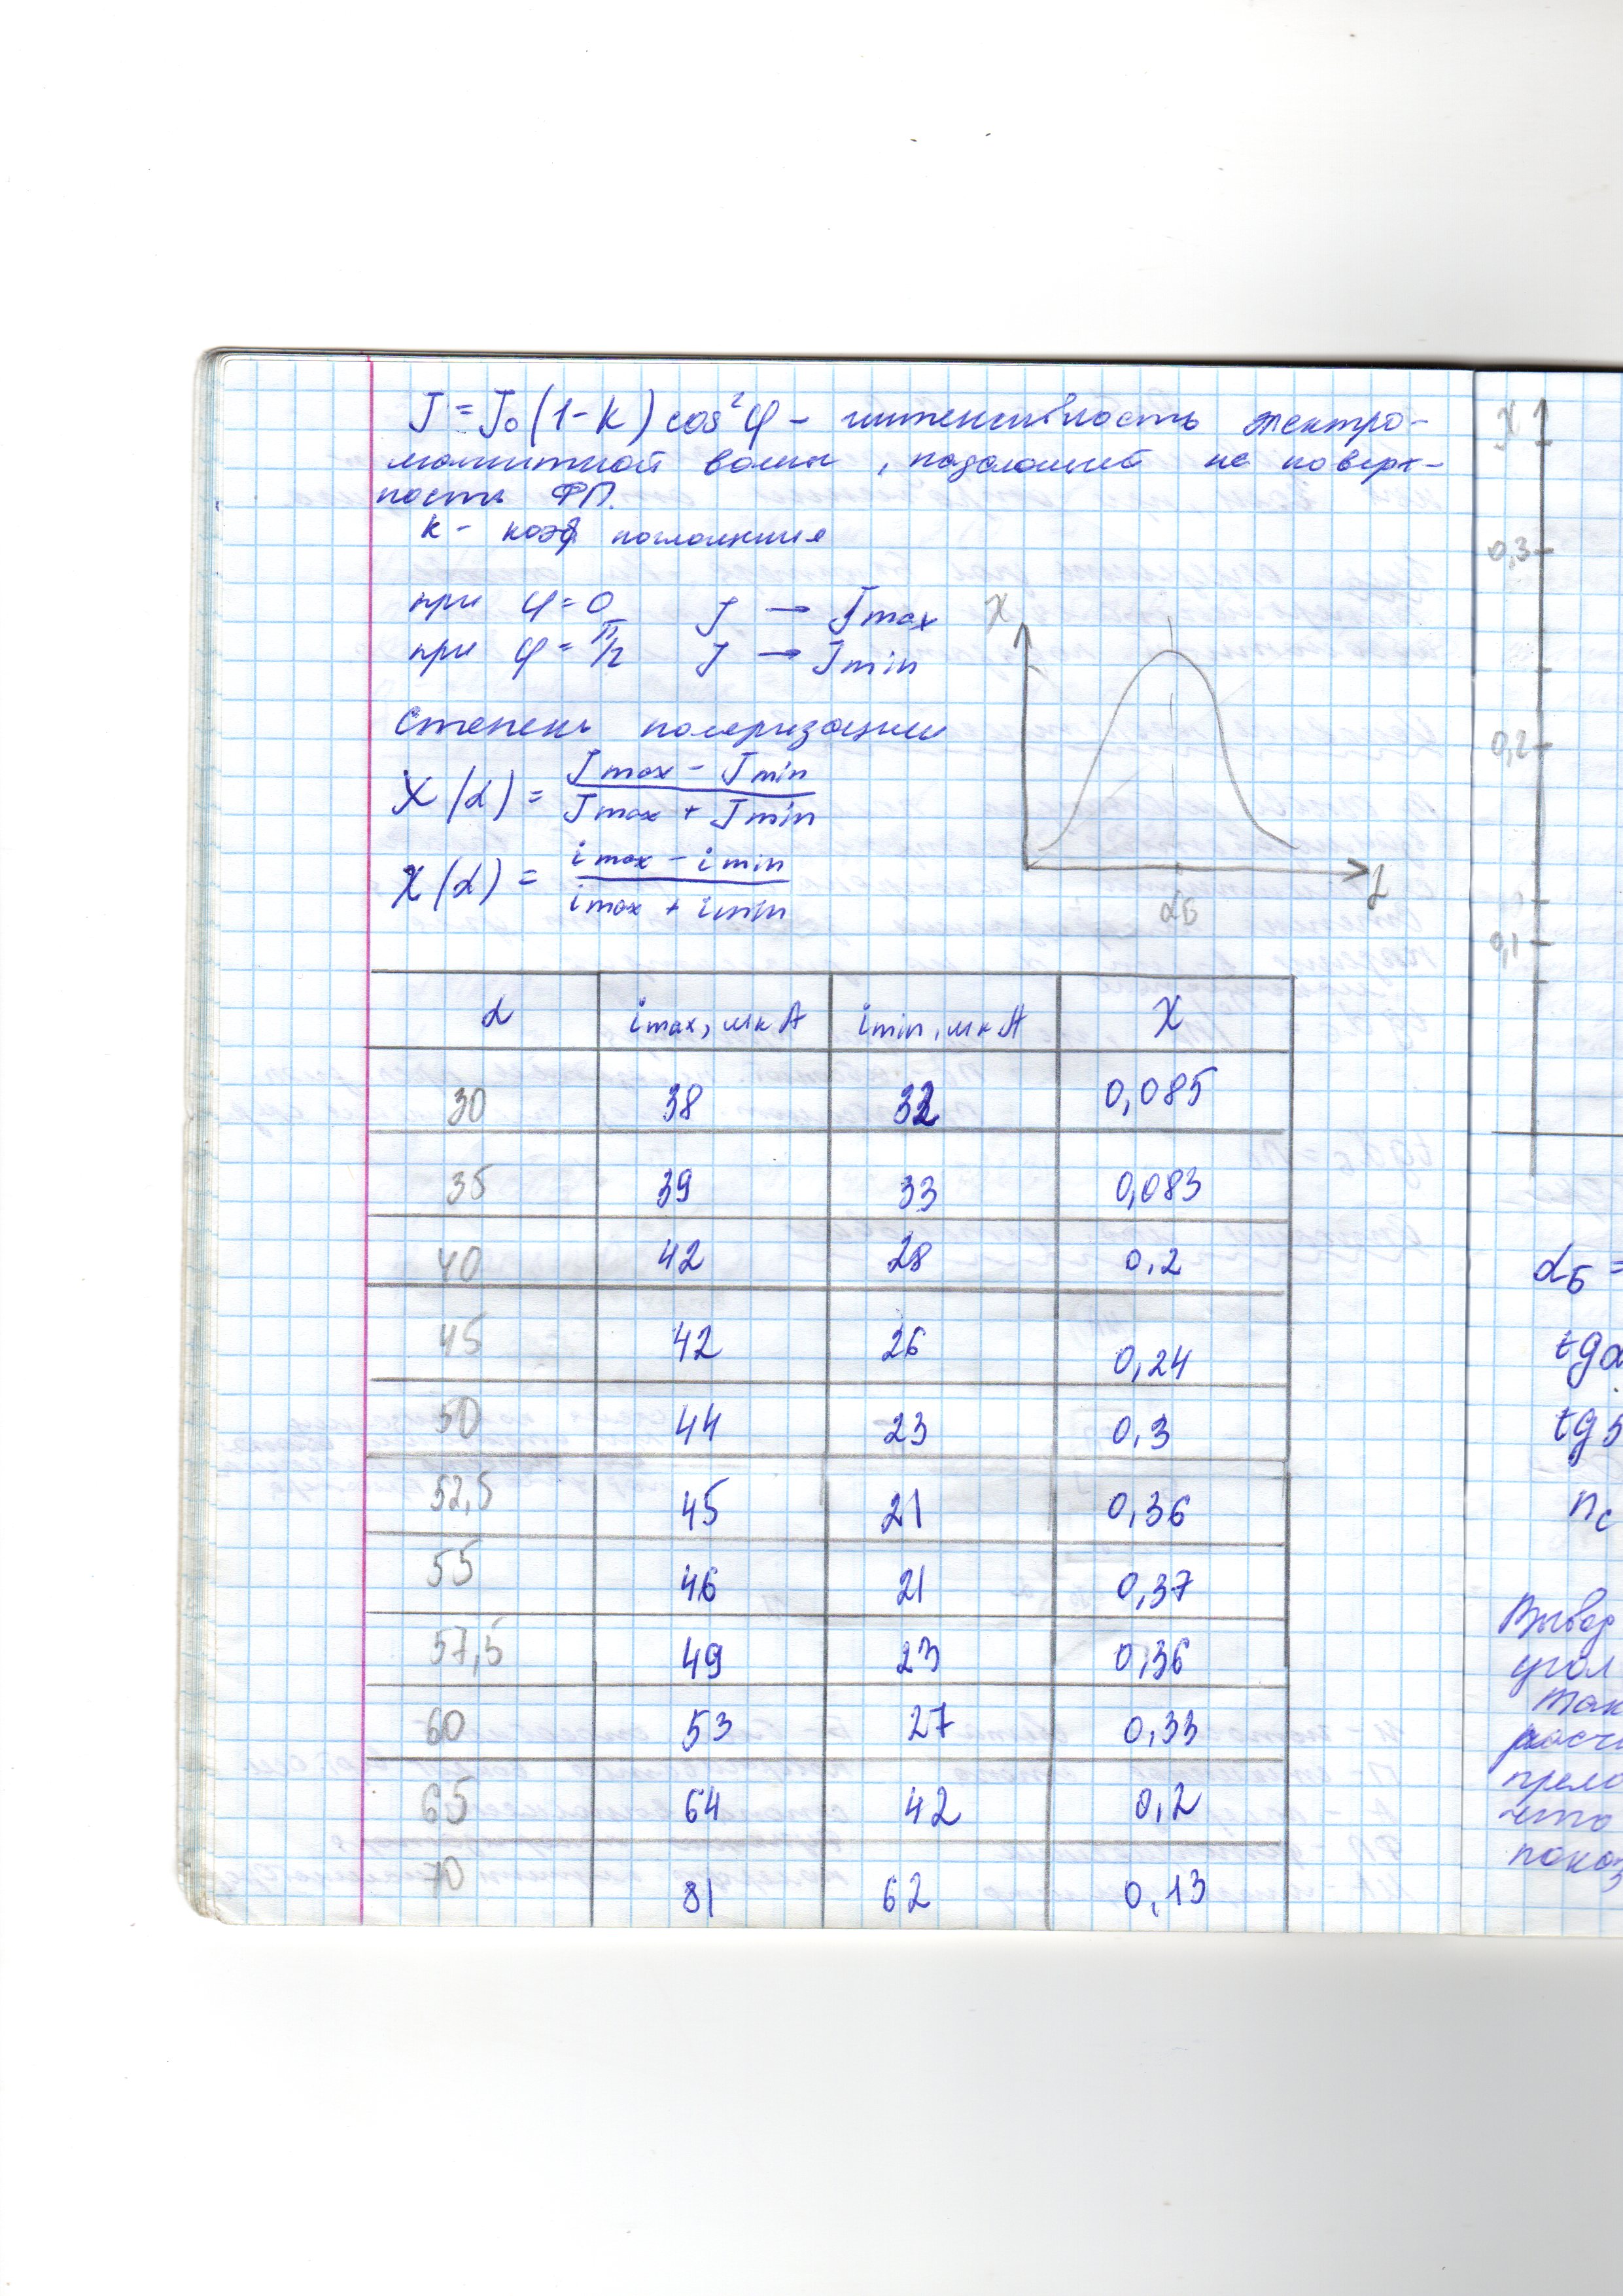 J = J₀(1-k) cos²φ - интенсивность электро-
магнитной волны, падающей на поверх-
ность ФП.
k - коэф поглощения
при φ = 0 J → Jmax
при φ = π/2 J → Jmin
Степень поляризации
X(α) = (Jmax - Jmin)/(Jmax + Jmin)
X(α) = (imax - imin)/(imax + imin)
X
αБ
α
α imax, мкА imin, мкА X
30 38 32 0,085
35 39 33 0,083
40 42 28 0,2
45 42 26 0,24
50 44 23 0,3
52,5 45 21 0,36
55 46 21 0,37
57,5 49 23 0,36
60 53 27 0,33
65 64 42 0,2
70 81 62 0,13
X
0,3
0,2
0,1
αБ =
tg α
tg 5
nc
Вывод
угол
так
расч
прело
что
показ